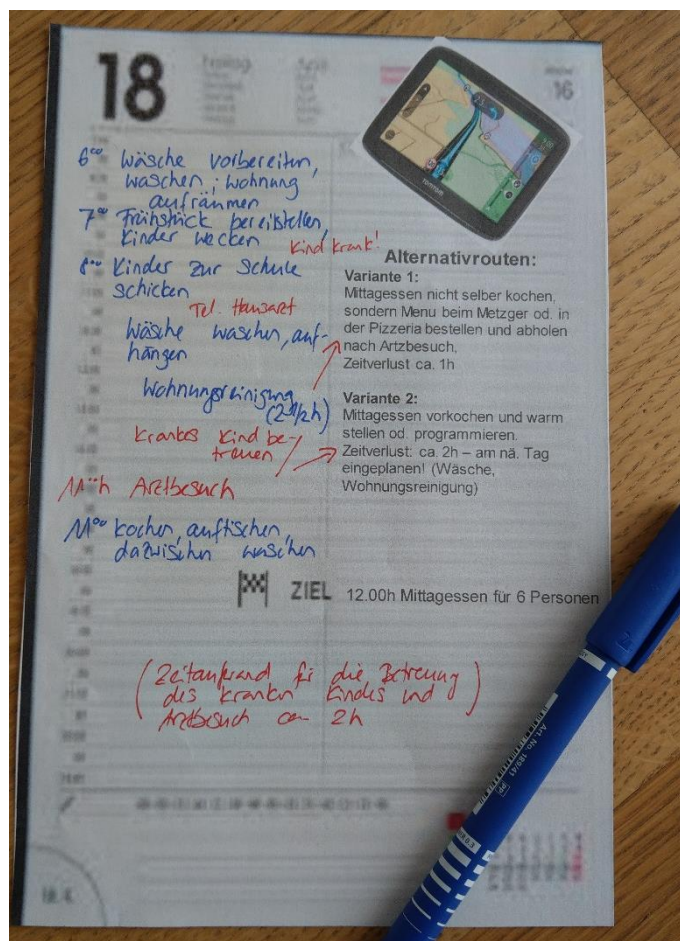 18
Freitag
16
6⁰⁰ Wäsche vorbereiten,
waschen; Wohnung
aufräumen
7⁰⁰ Frühstück bereitstellen,
Kinder wecken
Kind krank!
8⁰⁰ Kinder zur Schule
schicken
Tel. Hausarzt
Wäsche waschen, auf-
hängen
Wohnungsreinigung
(2 1/2h)
Krankes Kind be-
treuen
11⁰⁰h Arztbesuch
11⁰⁰ kochen, auftischen,
dazwischen waschen
TOMTOM
Alternativrouten:
Variante 1:
Mittagessen nicht selber kochen,
sondern Menu beim Metzger od. in
der Pizzeria bestellen und abholen
nach Artzbesuch,
Zeitverlust ca. 1h
Variante 2:
Mittagessen vorkochen und warm
stellen od. programmieren.
Zeitverlust: ca. 2h – am nä. Tag
eingeplanen! (Wäsche,
Wohnungsreinigung)
ZIEL 12.00h Mittagessen für 6 Personen
(Zeitaufwand für die Betreuung
des kranken Kindes und
Arztbesuch ca. 2h)
Art. No. 189/41
PP
18.4.